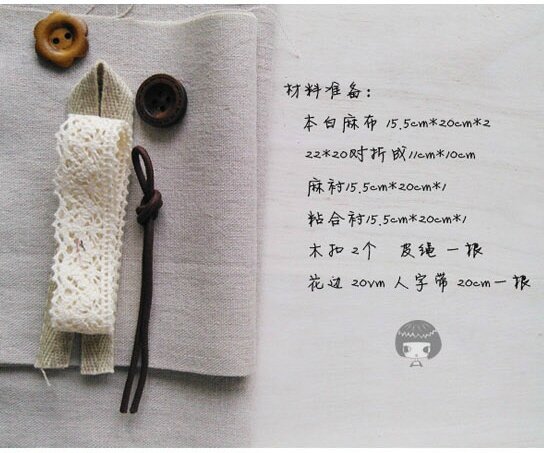 材料准备：
本白麻布 15.5cm*20cm*2
22*20对折成11cm*10cm
麻衬15.5cm*20cm*1
粘合衬15.5cm*20cm*1
木扣2个 皮绳 一根
花边 20vm 人字带 20cm一根